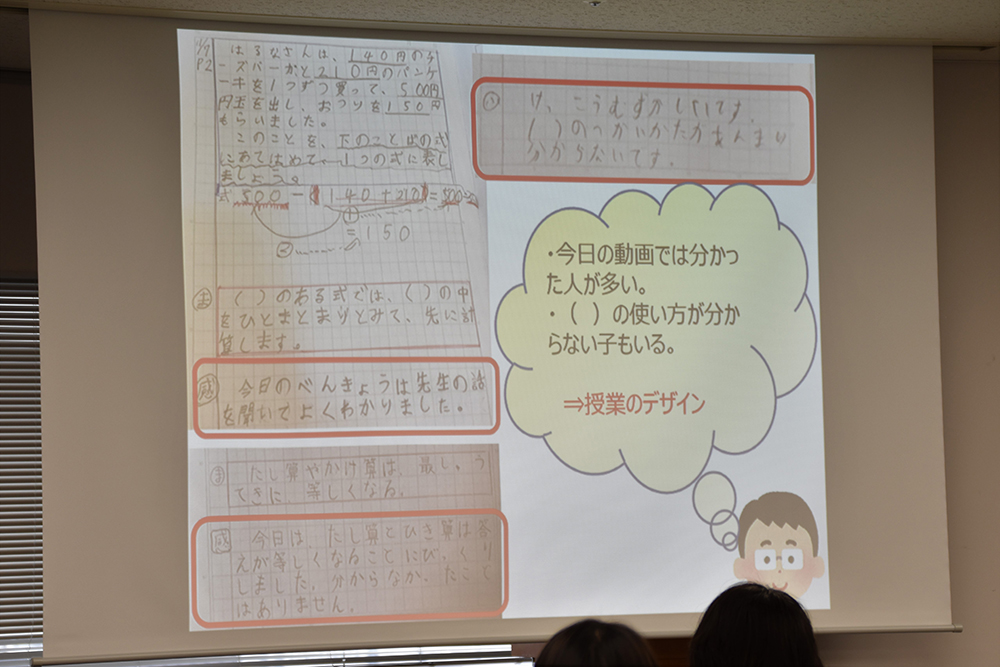 はるなさんは、140円のチ
P2 ーズバーガと210円のパンケ
ーキを1つずつ買って、500円
円玉を出し、おつりを150円
もらいました。
このことを、下のことばの式
にあてはめて、1つの式に表し
ましょう。
式 500-(140+210)=500-350
①
=150
②
ま ( )のある式では、( )の中
をひとまとまりとみて、先に計
算します。
感 今日のべんきょうは先生の話
を聞いてよくわかりました。
ま たし算やかけ算は、
等しくなる。
感 今日は、たし算とひき算は答
えが等しくなることにびっくり
しました。分からなかったこと
はありません。
け、こうむずかしいです。
( )のつかいかたがあんまり
分からないです。
・今日の動画では分かっ
た人が多い。
・( )の使い方が分か
らない子もいる。
⇒授業のデザイン